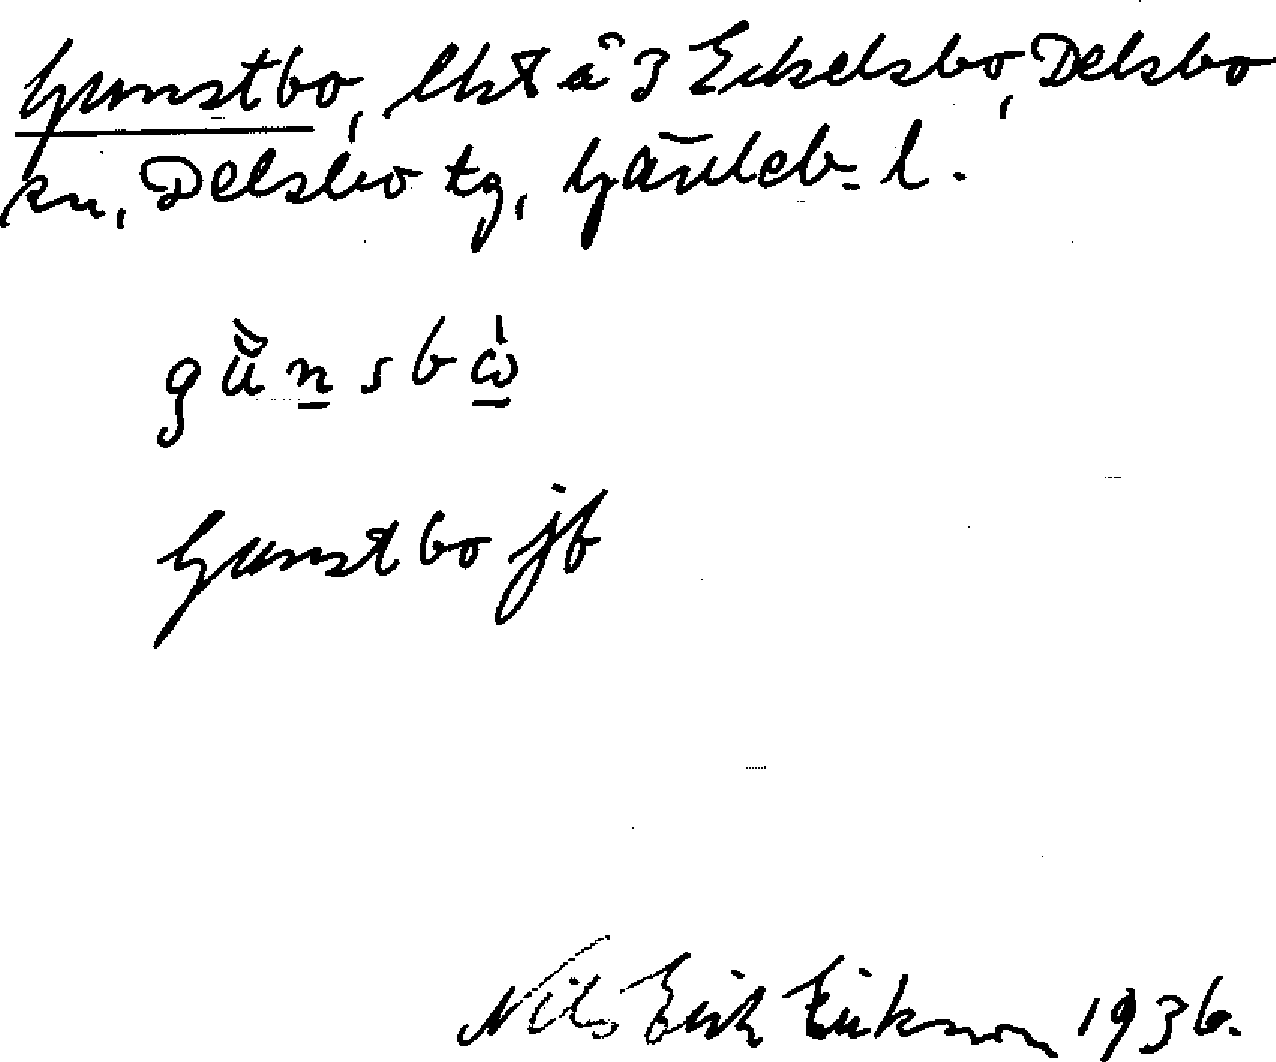 Gunstbo, lht å 3 Eckelsbo, Delsbo
sn, Delsbo tg, Gävleb. l.
Gunstbo jb
Nils Erik Eriksson 1936.